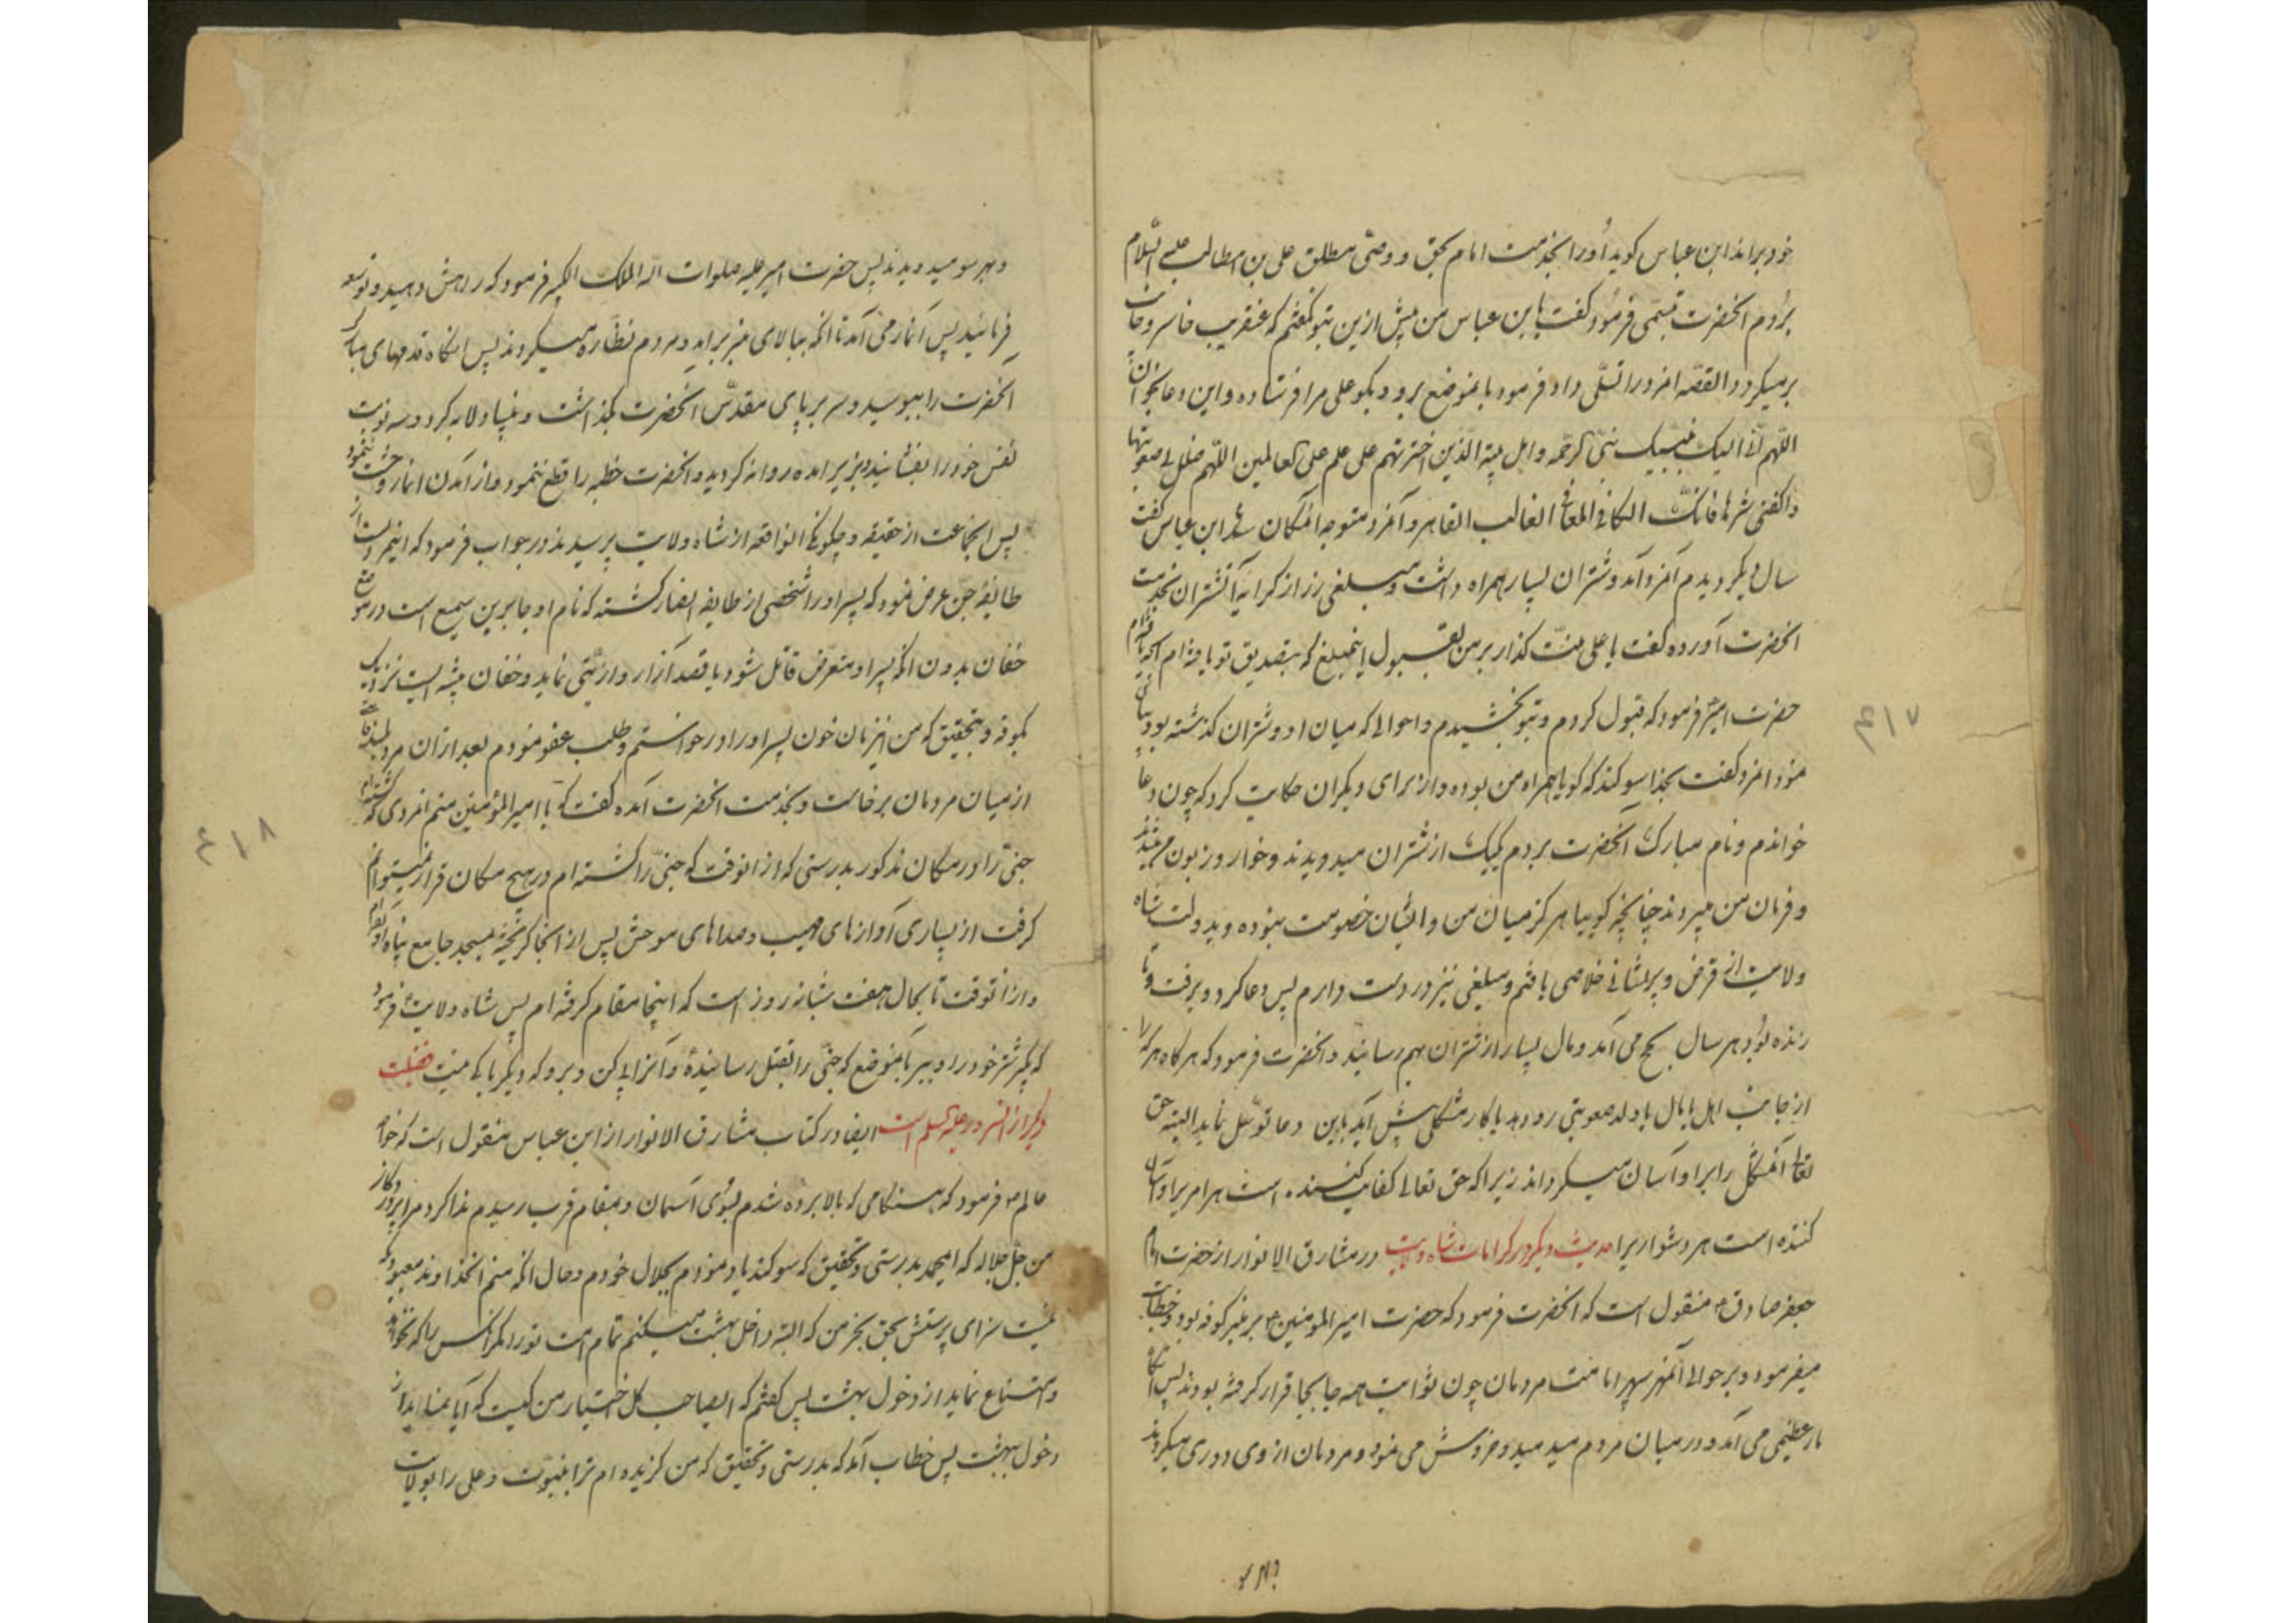 خود براند ابن عباس کوید او را بخدمت امام بحق و وصی مطلق علی بن ابیطالب علیه السلام
بردم انحضرت تبسمی فرمود و کفت یا بن عباس من پیش ازین بتو کفتم که عنقریب خاسر و خایب
برمیکردد القصه امزد را تسلی داد و فرمود بانموضع برو و بکو علی مرا فرستاده و این دعا بخوان
اللهم انی الیک بنبیک نبی الرحمه و اهل بیته الذین اخترتهم علی علم علی العالمین اللهم ذلل لی صعوبتها
واکفنی شرها فانک الکافی المعافی الغالب القاهر و آنمرد متوجه انمکان شد ابن عباس کفت
سال دیکر دیدم آنمرد آمد و شتران بسیار همراه داشت و مبلغی زر از کرایه آنشتران بخدمت
انحضرت آورده کفت یا علی منت کذار بر من بقبول اینمبلغ که بتصدیق تو یافته ام
حضرت امیر فرمود که قبول کردم و بتو بخشیدم و احوالی که میان او و شتران کذشته بود بیان
نمود انمرد کفت بخدا سوکند که کویا همراه من بوده و از برای دیکران حکایت کرد که چون دعا
خواندم و نام مبارک انحضرت بردم یکیک از شتران میدویدند و خوار و زبون من میشدند
و فرمان من میبردند چنانچه کوییا هرکز میان من و ایشان خصومت نبوده و بدولت شاه
ولایت از قرض و پریشانی خلاصی یافتم و مبلغی نیز در دست دارم پس دعا کرد و برفت و تا
زنده بود هر سال بحج می آمد و مال بسیار از شتران بهم رسانید و انحضرت فرمود که هرکاه هرکه را
از جانب اهل یا مال یا ولد صعوبتی رو دهد یا کار مشکلی پیش آید باین دعا توسل نماید البته حق
تعالی آنمشکل را بر او آسان میکرداند زیرا که حق تعالی کفایت کننده است هر امریرا و آسان
کننده است هر دشواریرا حدیث دیکر در کرامات شاه ولایت در مشارق الانوار از حضرت امام
جعفر صادق منقول است که انحضرت فرمود که حضرت امیر المومنین بر منبر کوفه بود و خطابت
میفرمود و بر حوالی آنمهر سپهر امامت مردمان چون ثوابت همه جا بجا قرار کرفته بودند پس انکاه
مار عظیمی می آمد و در میان مردم میدمید و خروش می نمود و مردمان از وی دوری میکردند
و بهر سو
و بهر سو میدویدند پس حضرت امیر علیه صلوات اله الملک الکبیر فرمود که راهش دهید و توسعه
فرمائید پس آنمار می آمد تا انکه ببالای منبر بر آمد و مردم نظاره میکردند پس انکاه قدمهای مبارک
انحضرت را ببوسید و سر بر پای مقدس انحضرت بگذاشت و بنیاد لابه کرد و سه نوبت
نفس خود را بفشانید و بزیر آمده روانه کردید و انحضرت خطبه را قطع ننمود و از آمدن انمار وحشت ننمود
پس انجماعت از حقیقه و چکونکی انواقعه از شاه ولایت پرسیدند در جواب فرمود که اینمردیست از
طایفه جن عرض نمود که پسر او را شخصی از طایفه انصار کشته که نام او جابر بن سمیع است در موضع
خفان بدون انکه پسر او متعرض قاتل شود یا قصد آزار و اذیتی نماید و خفان بیشه ایست نزدیک
بکوفه و بتحقیق که من اینزمان خون پسر او را درخواستم و طلب عفو نمودم بعد از آن مرد بلند قامتی
از میان مردمان برخاست و بخدمت انحضرت آمده کفت که یا امیر المؤمنین منم انمردی که کشته ام
جنی را در مکان مذکور بدرستی که از انوقت که جنی را کشته ام در هیچ مکان قرار نمیتوانم
کرفت از بسیاری آوازهای مهیب و صداهای موحش پس از انجا کریخته بمسجد جامع پناه آورده ام
و از آنوقت تا بحال هفت شبانه روز است که اینجا مقام کرفته ام پس شاه ولایت فرمود
که بکیر شتر خود را و ببر بآنموضع که جنی را بقتل رسانیدهٔ و آنرا پی کن و برو که دیکر باکی نیست فضیلت
دیکر از انسرور علیه السلم است ایضا در کتاب مشارق الانوار از ابن عباس منقول است که خواجه
عالم فرمود که هنکامی که بالا برده شدم بسوی آسمان و بمقام قرب رسیدم ندا کرد مرا پروردکار
من جل جلاله که ایمحمد بدرستی و تحقیق که سوکند یاد نمودم بجلال خودم و حال انکه منم انخداوند معبودی که
نیست سزای پرستش بحق بجز من که البته داخل بهشت میکنم تمام امت تو را مکر انکس را که نخواهد
و امتناع نماید از دخول بهشت پس کفتم که ایصاحب کل اختیار من کیست که آبا نماید از
دخول بهشت پس خطاب آمد که بدرستی و تحقیق که من کزیده ام ترا بنبوت و علی را بولایت